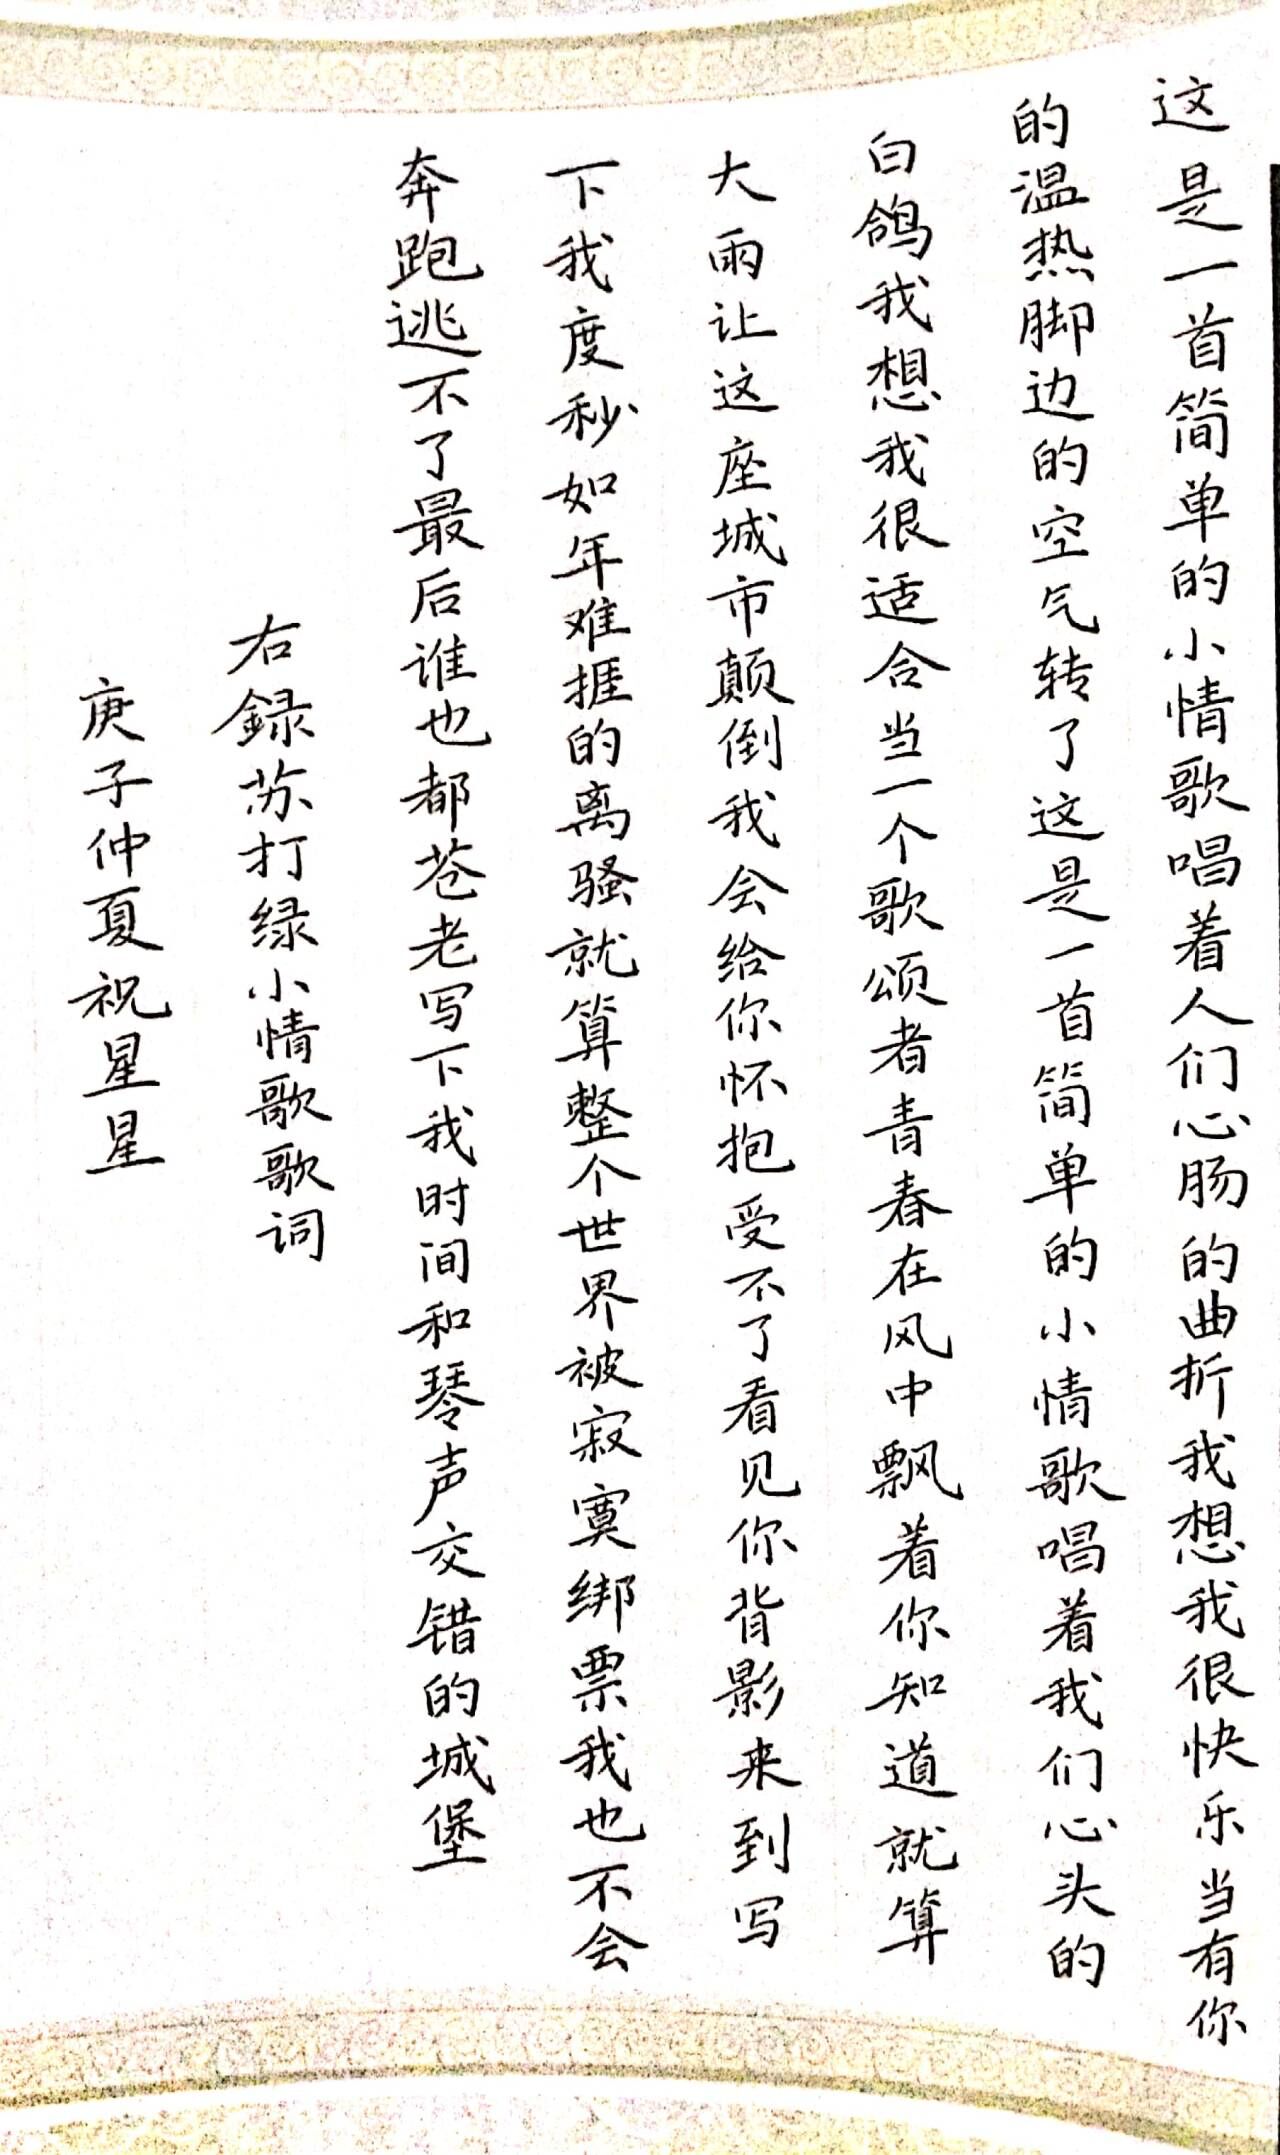 这是一首简单的小情歌唱着人们心肠的曲折我想我很快乐当有你
的温热脚边的空气转了这是一首简单的小情歌唱着我们心头的
白鸽我想我很适合当一个歌颂者青春在风中飘着你知道就算
大雨让这座城市颠倒我会给你怀抱受不了看见你背影来到写
下我度秒如年难捱的离骚就算整个世界被寂寞绑票我也不会
奔跑逃不了最后谁也都苍老写下我时间和琴声交错的城堡
右録苏打绿小情歌歌词
庚子仲夏祝星星